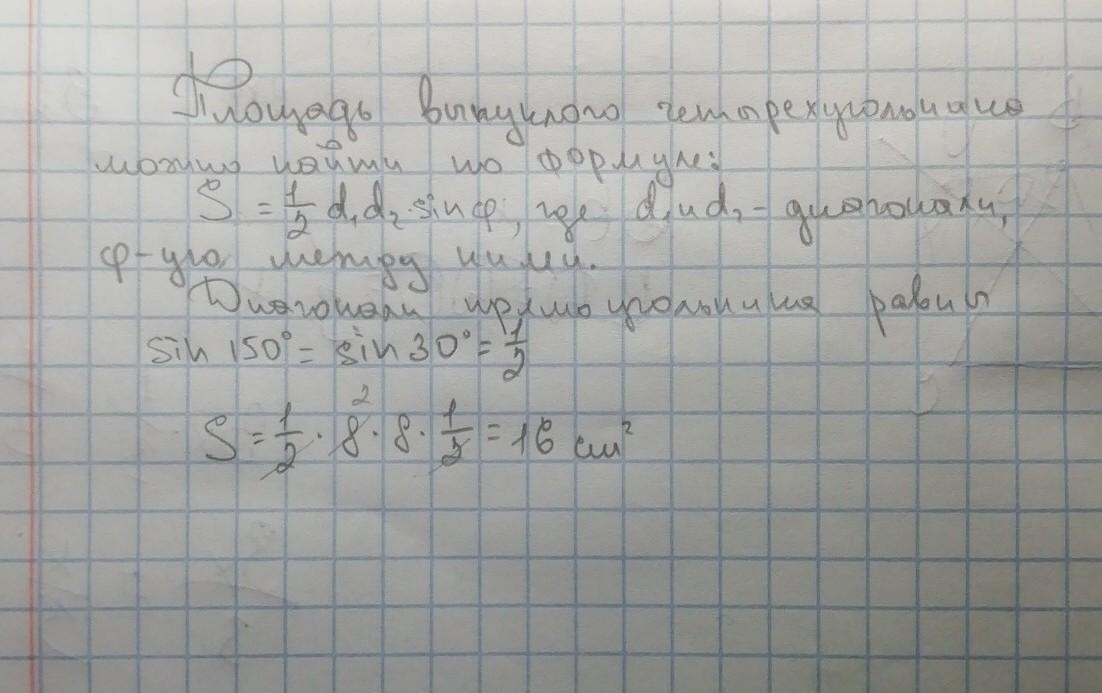 Площадь выпуклого четырехугольника
можно найти по формуле:
S = 1/2 d₁d₂·sin φ, где d₁ и d₂ - диагонали,
φ-уго между ними.
Диагонали прямоугольника равны
sin 150° = sin 30° = 1/2
2
S = 1/2 · 8 · 8 · 1/2 = 16 см²